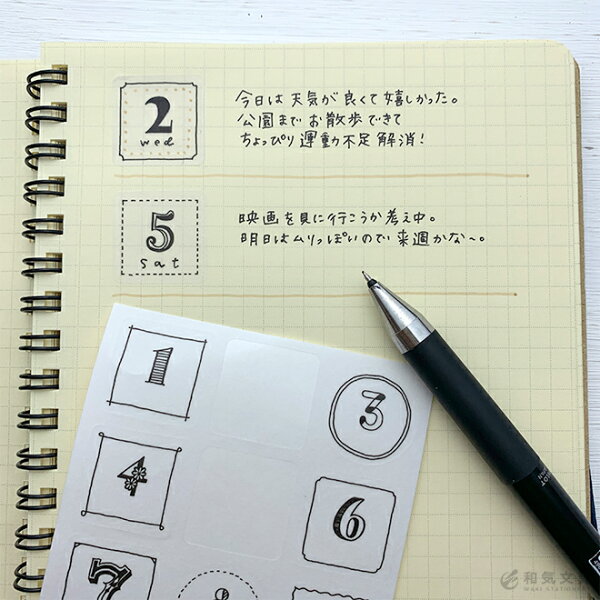 2
wed
今日は天気が良くて嬉しかった。
公園までお散歩できて
ちょっぴり運動不足解消!
5
sat
映画を見に行こうか考え中。
明日はムリっぽいので来週かな〜。
1
3
4
6
7
和気文
WAKI STATIONERY